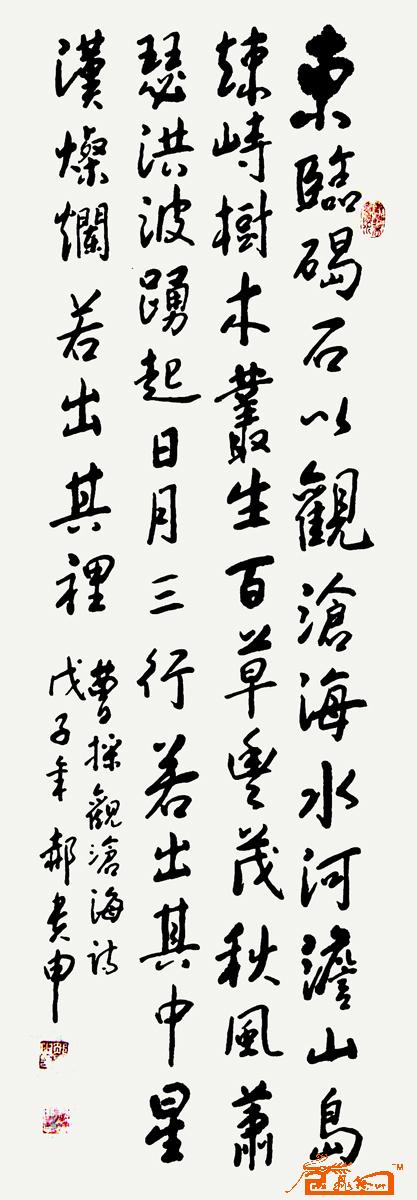 東臨碣石以觀滄海水河澹山島
竦峙樹木叢生百草豐茂秋風蕭
瑟洪波踴起日月三行若出其中星
漢燦爛若出其裡
曹操觀滄海詩
戊子年郝貴申